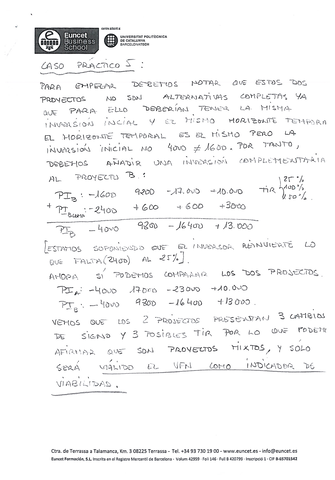 Euncet
Business
School
UNIVERSITAT POLITÈCNICA
DE CATALUNYA
BARCELONATECH
CASO PRÁCTICO 5 :
PARA EMPEZAR DEBEMOS NOTAR QUE ESTOS DOS
PROYECTOS NO SON ALTERNATIVAS COMPLETAS, YA
QUE PARA ELLO DEBERÍAN TENER LA MISMA
INVERSIÓN INICIAL Y EL MISMO HORIZONTE TEMPORA
EL HORIZONTE TEMPORAL ES EL MISMO PERO LA
INVERSIÓN INICIAL NO 4000 ≠ 1600. POR TANTO,
DEBEMOS AÑADIR UNA INVERSIÓN COMPLEMENTARIA
AL PROYECTO B :
PI B : -1600 9200 -17.000 +10.000 TIR
+ PI : -2400 + 600 + 600 +3000
PI B -4000 9800 -16400 +13.000
[ESTAMOS SUPONIENDO QUE EL INVERSOR REINVIERTE LO
QUE FALTA (2400) AL 25%].
AHORA SÍ PODEMOS COMPARAR LOS DOS PROYECTOS.
PI A : -4000 17000 -23000 +10.000
PI B : -4000 9800 -16400 +13000.
VEMOS QUE LOS 2 PROYECTOS PRESENTAN 3 CAMBIOS
DE SIGNO Y 3 POSIBLES TIR POR LO QUE PODEM
AFIRMAR QUE SON PROYECTOS MIXTOS, Y SOLO
SERÁ VÁLIDO EL VFN COMO INDICADOR DE
VIABILIDAD.
Ctra. de Terrassa a Talamanca, Km. 3 08225 Terrassa - Tel. +34 93 730 19 00 - www.euncet.es - info@euncet.es
Euncet Formación, S.L. Inscrita en el Registro Mercantil de Barcelona